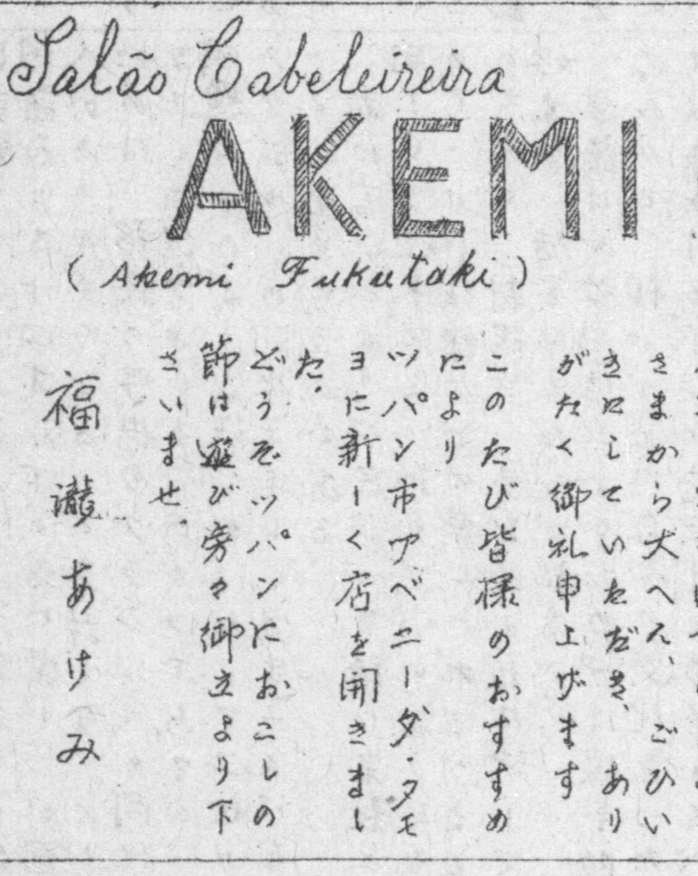 Salão Cabeleireira
AKEMI
(Akemi Fukutaki)
さまから大へん、ごひい
きにしていただき、あり
がたく御礼申上げます
このたび皆様のおすすめ
により
ツパン市アベニーダ・タモ
ヨに新しく店を開きまし
た。
どうぞツパンにおこしの
節は遊び旁々御立より下
さいませ。
福瀧あけみ